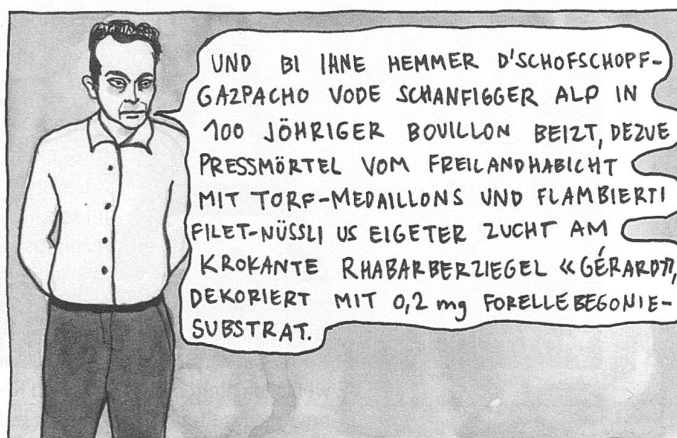 UND BI IHNE HEMMER D'SCHOFSCHOPF-
GAZPACHO VODE SCHANFIGGER ALP IN
100 JÖHRIGER BOUILLON BEIZT, DEZUE
PRESSMÖRTEL VOM FREILANDHABICHT
MIT TORF-MEDAILLONS UND FLAMBIERTI
FILET-NÜSSLI US EIGETER ZUCHT AM
KROKANTE RHABARBERZIEGEL «GÉRARD»,
DEKORIERT MIT 0,2 mg FORELLEBEGONIE-
SUBSTRAT.